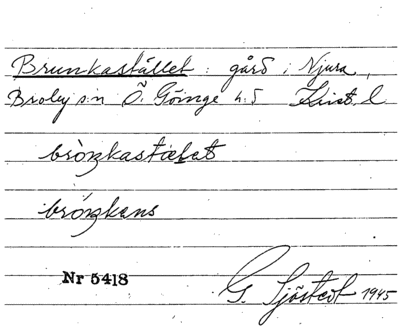 Brunkastället : gård i Njura,
Broby s:n Ö. Göinge h:d Krist. l
bròŋkastæłət
bróŋkans
Nr 5418
G. Sjöstedt 1945